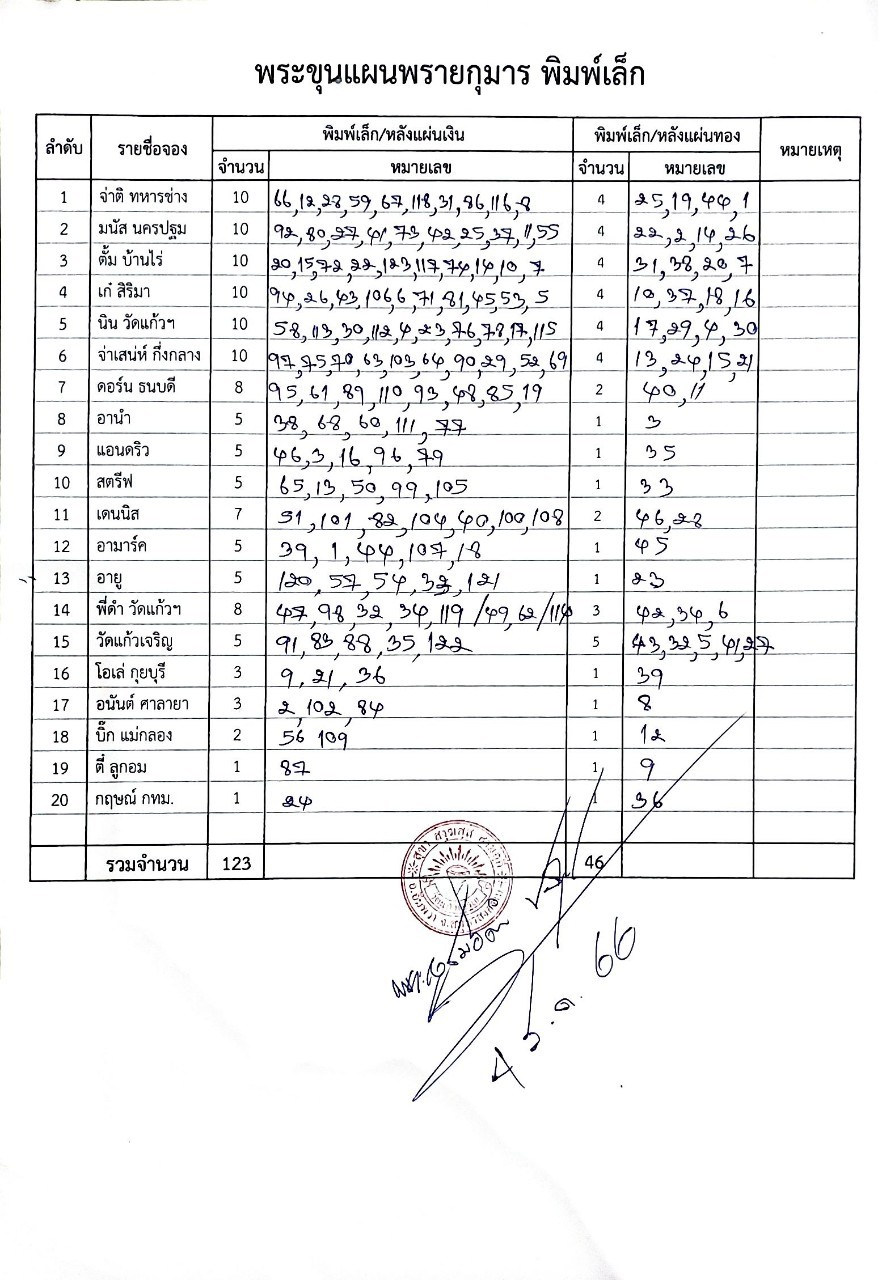 พระขุนแผนพรายกุมาร พิมพ์เล็ก
ลำดับ รายชื่อจอง พิมพ์เล็ก/หลังแผ่นเงิน พิมพ์เล็ก/หลังแผ่นทอง หมายเหตุ
จำนวน หมายเลข จำนวน หมายเลข
1 จ่าติ ทหารช่าง 10 66,12,28,59,67,118,31,86,116,8 4 25,19,44,1
2 มนัส นครปฐม 10 92,80,27,41,73,42,25,37,11,55 4 22,2,14,26
3 ตั้ม บ้านไร่ 10 20,15,72,22,123,117,74,14,10,7 4 31,38,20,7
4 เก๋ สิริมา 10 94,26,43,106,6,71,81,45,53,5 4 10,37,18,16
5 นิน วัดแก้วฯ 10 58,113,30,112,4,23,76,78,17,115 4 17,29,4,30
6 จ่าเสน่ห์ กึ่งกลาง 10 97,75,70,63,103,64,90,29,52,69 4 13,24,15,21
7 ดอร์น ธนบดี 8 95,61,89,110,93,48,85,19 2 40,11
8 อานำ 5 38,68,60,111,77 1 3
9 แอนดริว 5 46,3,16,96,79 1 35
10 สตรีฟ 5 65,13,50,99,105 1 33
11 เดนนิส 7 51,101,82,104,40,100,108 2 46,28
12 อามาร์ค 5 39,1,44,107,18 1 45
13 อายู 5 120,57,54,33,121 1 23
14 พี่ดำ วัดแก้วฯ 8 47,98,32,34,119/49,62/114 3 42,34,6
15 วัดแก้วเจริญ 5 91,83,88,35,122 5 43,32,5,41,27
16 โอเล่ กุยบุรี 3 9,21,36 1 39
17 อนันต์ ศาลายา 3 2,102,84 1 8
18 บิ๊ก แม่กลอง 2 56 109 1 12
19 ตี๋ ลูกอม 1 87 1 9
20 กฤษณ์ กทม. 1 24 1 36
รวมจำนวน 123 46